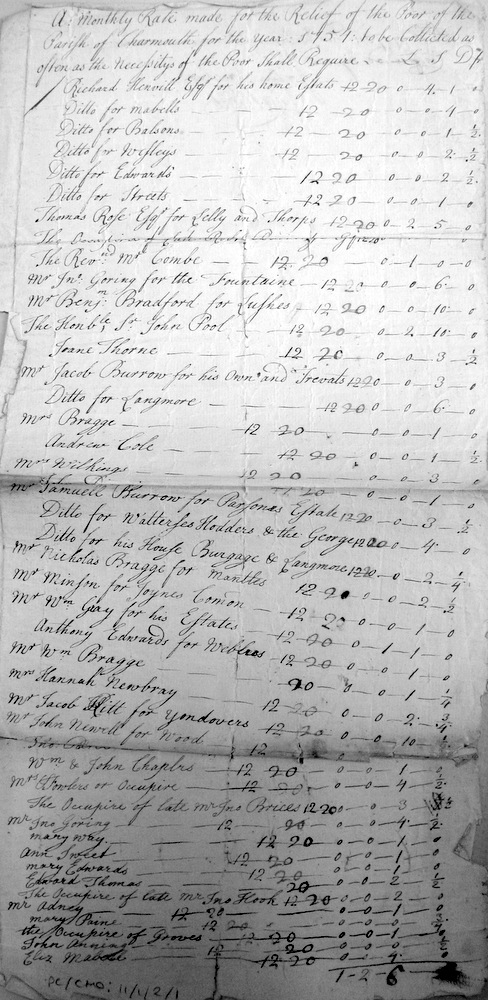 A Monthly Rate made for the Relief of the Poor of the
Parish of Charmouth for the Year 1754: to be Collected as
often as the Necessitys of the Poor Shall Require S D f
Richard Henvill Esqr for his home Estats 12 20 0 - 4 - 1 - 0
Ditto for mabells 12 20 0 - 0 - 4 - 0
Ditto for Balsons 12 20 0 - 0 - 1 ½
Ditto for Wesleys 12 20 0 - 0 - 2 ½
Ditto for Edwards 12 20 0 - 0 - 2 ½
Ditto for Streets 12 20 0 - 0 - 1 - 0
Thomas Rose Esqr for Lilly and Thorps 12 20 0 - 2 - 5 - 0
The Occupiers of late
The Revnd Mr Combe 12 20 0 - 1 - 0 - 0
Mr Jno Goring for the Fountaine 12 20 0 - 0 - 6 - 0
Mr Benjn Bradford for Lushes 12 20 0 - 0 - 10 - 0
The Honble Sr John Pool 12 20 0 - 2 - 10 - 0
Joane Thorne 12 20 0 - 0 - 3 ½
Mr Jacob Burrow for his Own and Trevats 12 20 0 - 0 - 3 - 0
Ditto for Langmore 12 20 0 - 0 - 6 - 0
Mrs Bragge 12 20 0 - 0 - 1 - 0
Andrew Cole 12 20 0 - 0 - 1 ½
Mrs Wilkings 12 20 0 - 0 - 3 - 0
Mr Samuell Burrow for Parsonas Estate 12 20 0 - 0 - 1 - 0
Ditto for Walterses Hodders & the George 12 20 0 - 3 ½
Ditto for his House Burgage & Langmore 12 20 0 - 4 - 0
Mr Nicholas Bragge for Mantles 12 20 0 - 2 ¼
Mr Minson for Joynes Comon 12 20 0 - 0 - 2 ½
Mr Wm Gay for his Estates 12 20 0 - 1 - 1 - 0
Anthony Edwards for Weblees 12 20 0 - 0 - 1 - 0
Mr Wm Bragge 20 0 - 0 - 1 ¼
Mrs Hannah Newbray 12 20 0 - 0 - 2 ¾
Mr Jacob Hitt for Yondovers 12 20 0 - 0 - 10
Mr John Newell for Wood 12
Wm & John Chaplrs 12 20 0 - 0 - 1 - 0
Mrs Fowlers or Occupire 12 20 0 - 0 - 4 ½
The Occupire of late Mr Jno Brices 12 20 0 - 0 - 3
Mr Jno Goring 12 20 0 - 0 - 4 ½
mary Way 12 20 0 - 0 - 1 - 0
Ann Sweet 12 20 0 - 0 - 1 - 0
mary Edwards 12 20 0 - 0 - 1 - 0
Edward Thomas 20 0 - 0 - 2 ½
The Occupire of late Mr Jno Hook 12 20 0 - 0 - 2 - 0
Mr Adney 12 20 0 - 0 - 1 - 0
mary Pane 12 20 0 - 0 - 0 ¾
the Occupire of Groves 12 20 0 - 0 - 1 - 0
John Anning 12 20 0 - 0 - 0 ½
Eliz Mabell 12 20 0 - 0 - 4 - 0
1 - 2 - 6
PC/CHO: 11/1/2/1